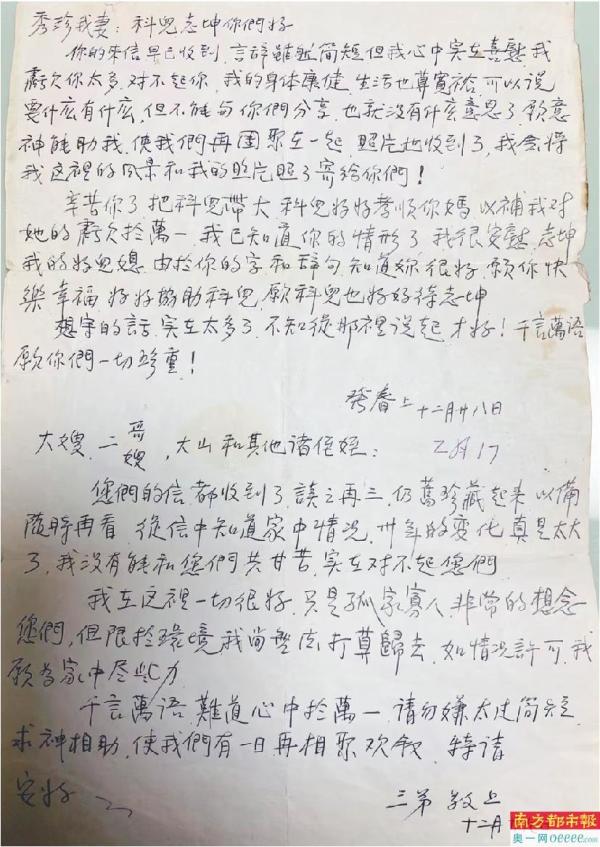 秀珍我妻：科兒志坤你們好
你的来信早已收到，言辞雖然简短但我心中实在喜慰，我
虧欠你太多，对不起你，我的身体康健，生活也算寬裕，可以说
要什么有什么，但不能与你們分享，也就没有什么意思了，愿意
神能助我，使我們再團聚在一起，照片也收到了，我会将
我这裡的风景和我的照片照了寄给你們！
辛苦你了把科兒帶大，科兒好好孝順你媽以補我对
她的虧欠扵萬一，我已知道你的情形了，我很安慰，志坤
我的好兒媳，由扵你的字和辞句，知道妳很好，願你快
樂幸福，好好協助科兒，願科兒也好好待志坤
想字的話，实在太多了，不知從那裡说起才好！千言萬語
願你們一切珍重！
上 十二月廿八日
2月17
大嫂，二哥嫂，大山和其他诸侄姪：
您們的信都收到了，读之再三，仍舊珍藏起来以備
随時再看，從信中知道家中情况，卅年的变化真是太大
了，我没有能和您們共甘苦，实在对不起您們
我在这裡一切很好，只是孤家寡人，非常的想念
您們，但限扵環境我尚無法打算歸去，如情况許可，我
願为家中尽些力
千言萬語，難道心中扵萬一，请勿嫌太过简短，
求神相助，使我們有一日再相聚欢叙，特请
安好
三弟 敬上
十二月
南方都市報
奥一网oeeee.com